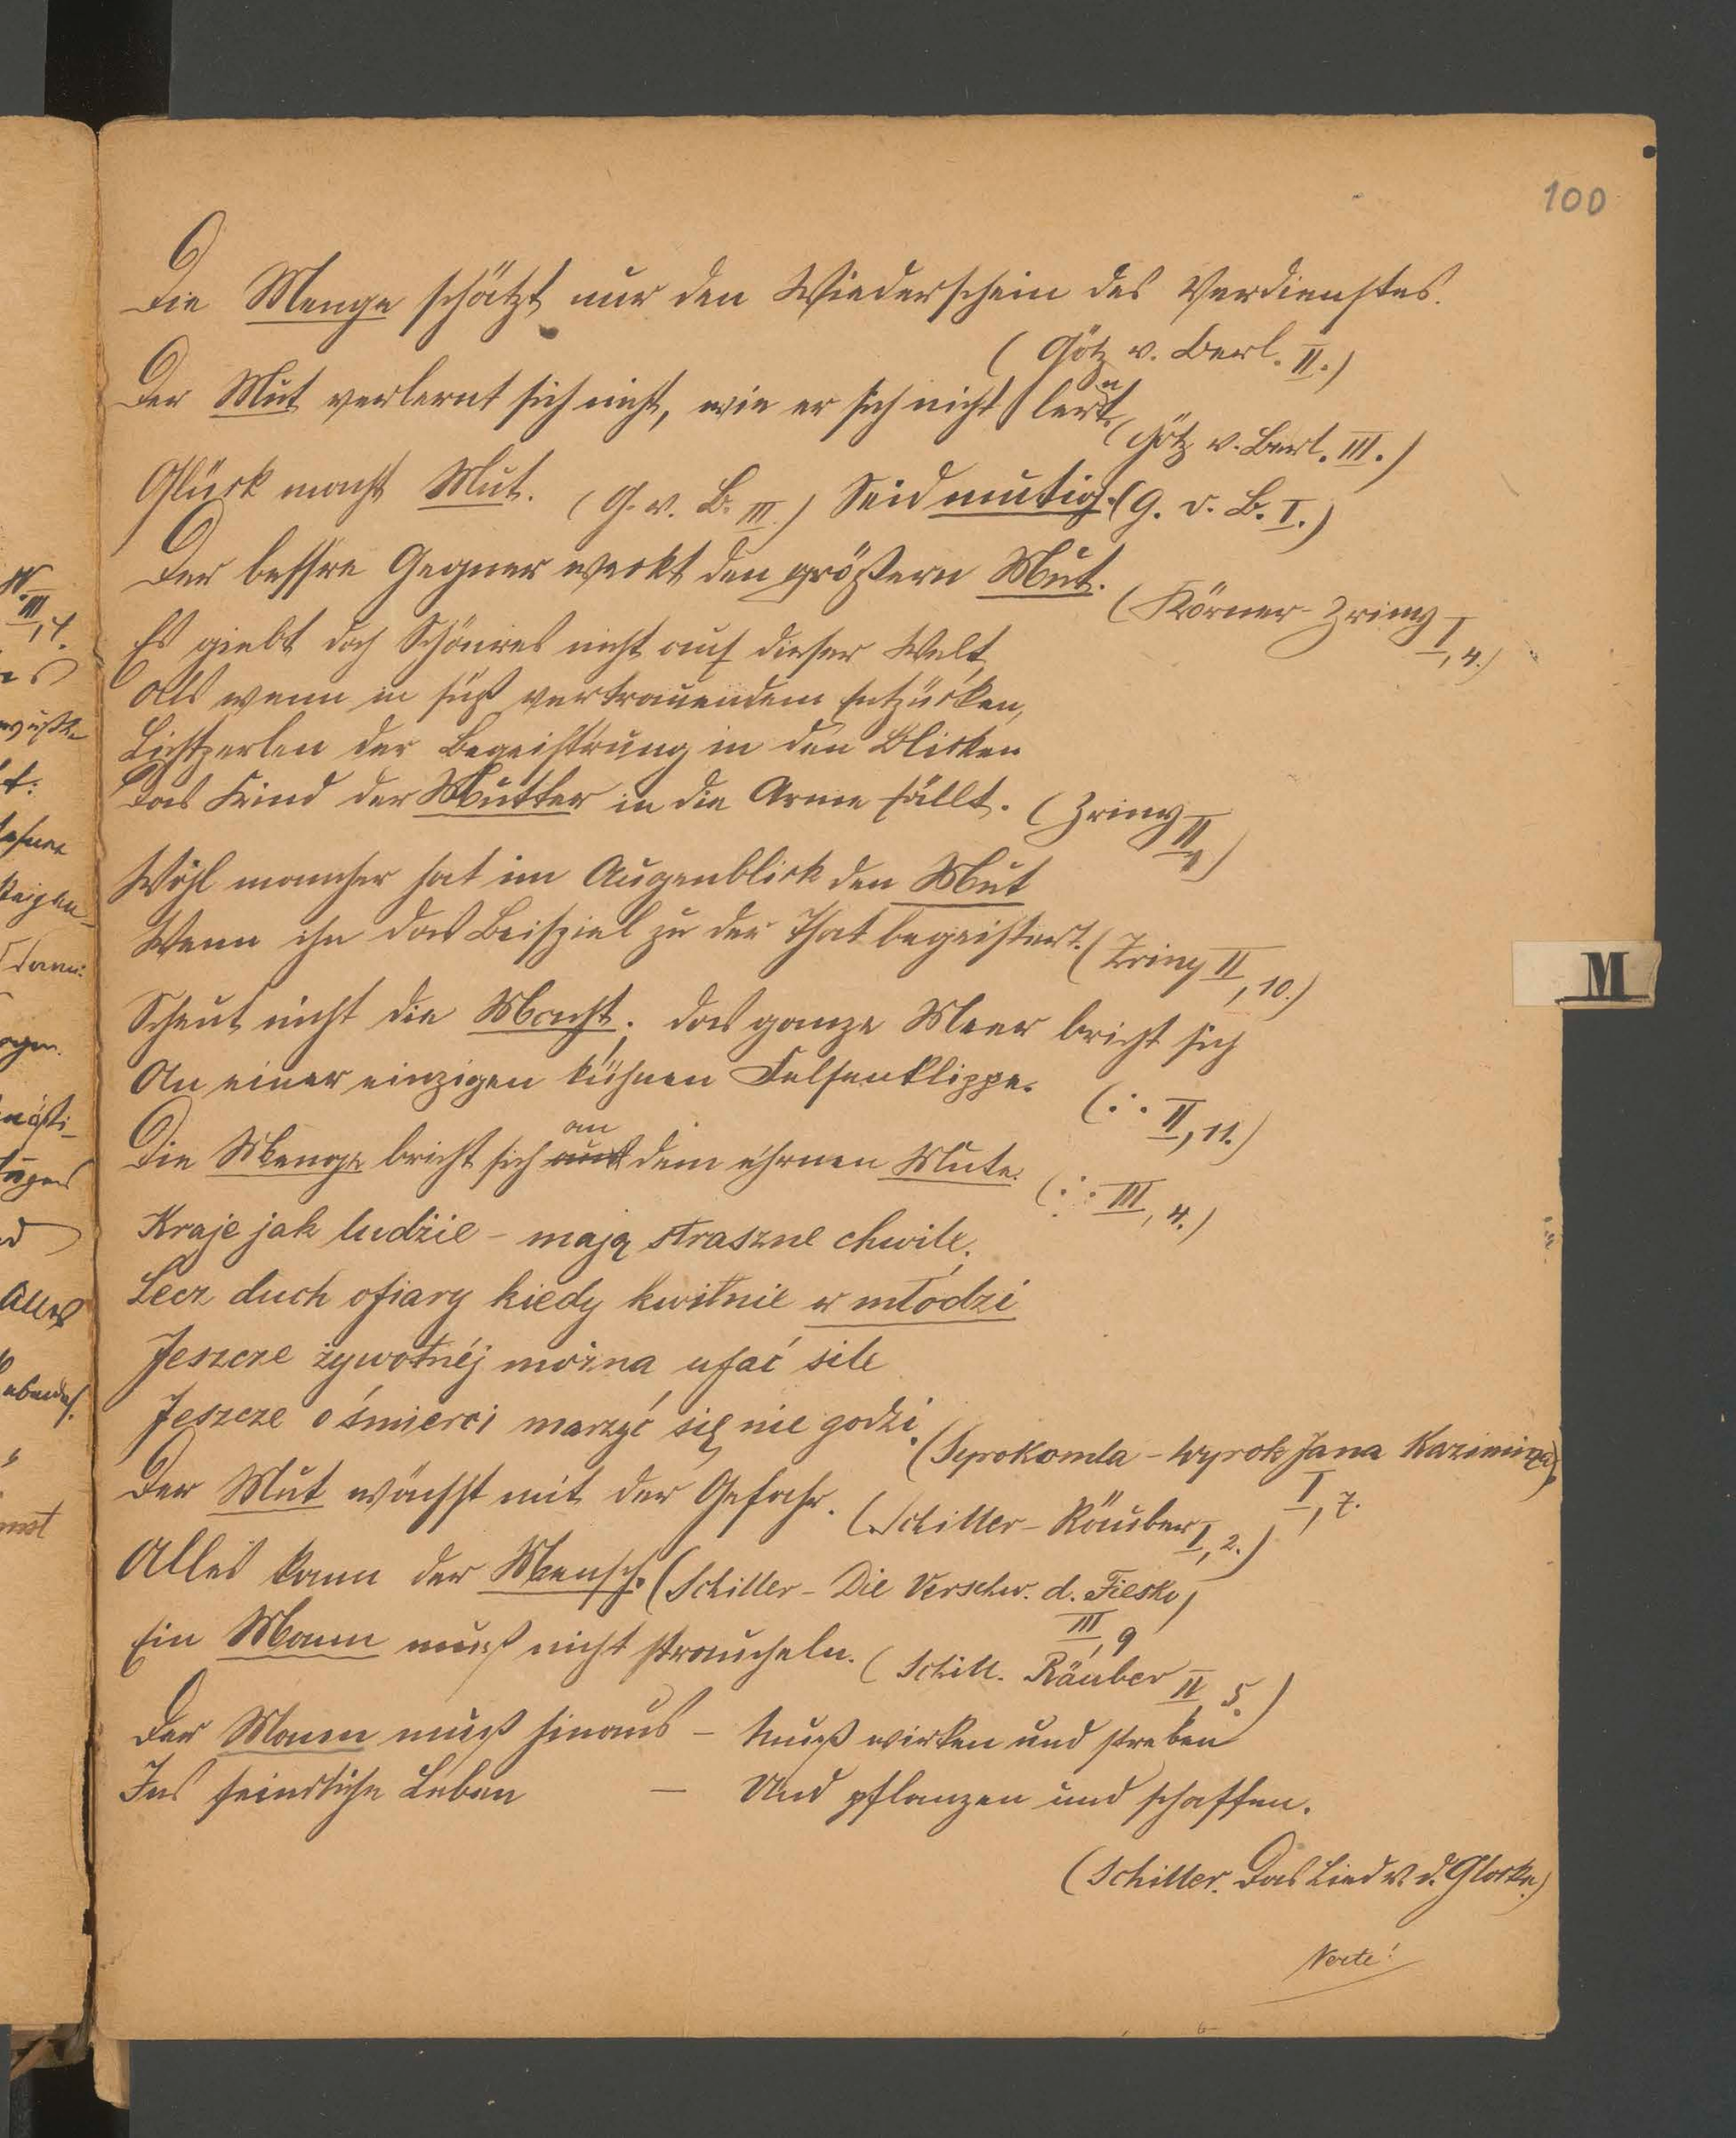 100
Die Menge schätzt nur den Wiederschein des Verdienstes.
(Götz v. Berl. II.)
Der Mut verlernt sich nicht, wie er sich nicht lernt.
(Götz v. Berl. III.)
Glück macht Mut. (G. v. B. III.) Seid mutig. (G. v. B. I.)
Der bessre Gegner weckt den größern Mut.
(Körner-Zriny I, 4.)
Es giebt doch Schönres nicht auf dieser Welt,
Als wenn in süß vertrauendem Entzücken,
Lichtperlen der Begeistrung in den Blicken
Das Kind der Mutter in die Arme fällt. (Zriny II)
Wohl mancher hat im Augenblick den Mut
Wenn ihn das Beispiel zu der That begeistert. (Zriny II, 10.)
Scheut nicht die Macht; das ganze Meer bricht sich
An einer einzigen kühnen Felsenklippe.
(∴ II, 11.)
Die Menge bricht sich an dem ehrnen Mute.
(∴ III, 4.)
Kraje jak ludzie – mają straszne chwile,
Lecz duch ofiary kiedy kwitnie w młodzi
Jeszcze żywotnéj można ufać sile
Jeszcze o śmierci marzyć się nie godzi.
(Syrokomla – Wyrok Jana Kazimirza)
I, 7.
Der Mut wächst mit der Gefahr. (Schiller – Räuber I, 2.)
Alles kann der Mensch. (Schiller – Die Verschw. d. Fiesko)
III, 9
Ein Mann muß nicht straucheln. (Schill. Räuber IV, 5.)
Der Mann muß hinaus – Muß wirken und streben
Ins feindliche Leben – Und pflanzen und schaffen.
(Schiller. Das Lied v. d. Glocke)
Verte!
M